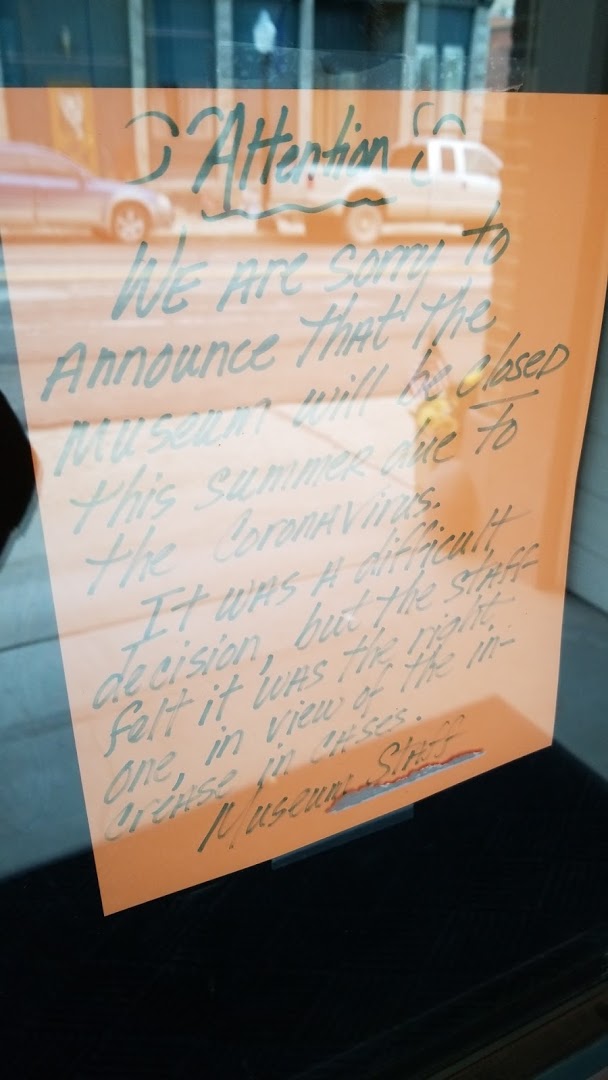 Attention
WE Are sorry to
Announce that the
Museum will be closed
this summer due to
the Coronavirus.
It was a difficult
decision, but the staff
felt it was the right
one, in view of the in-
crease in cases.
Museum Staff